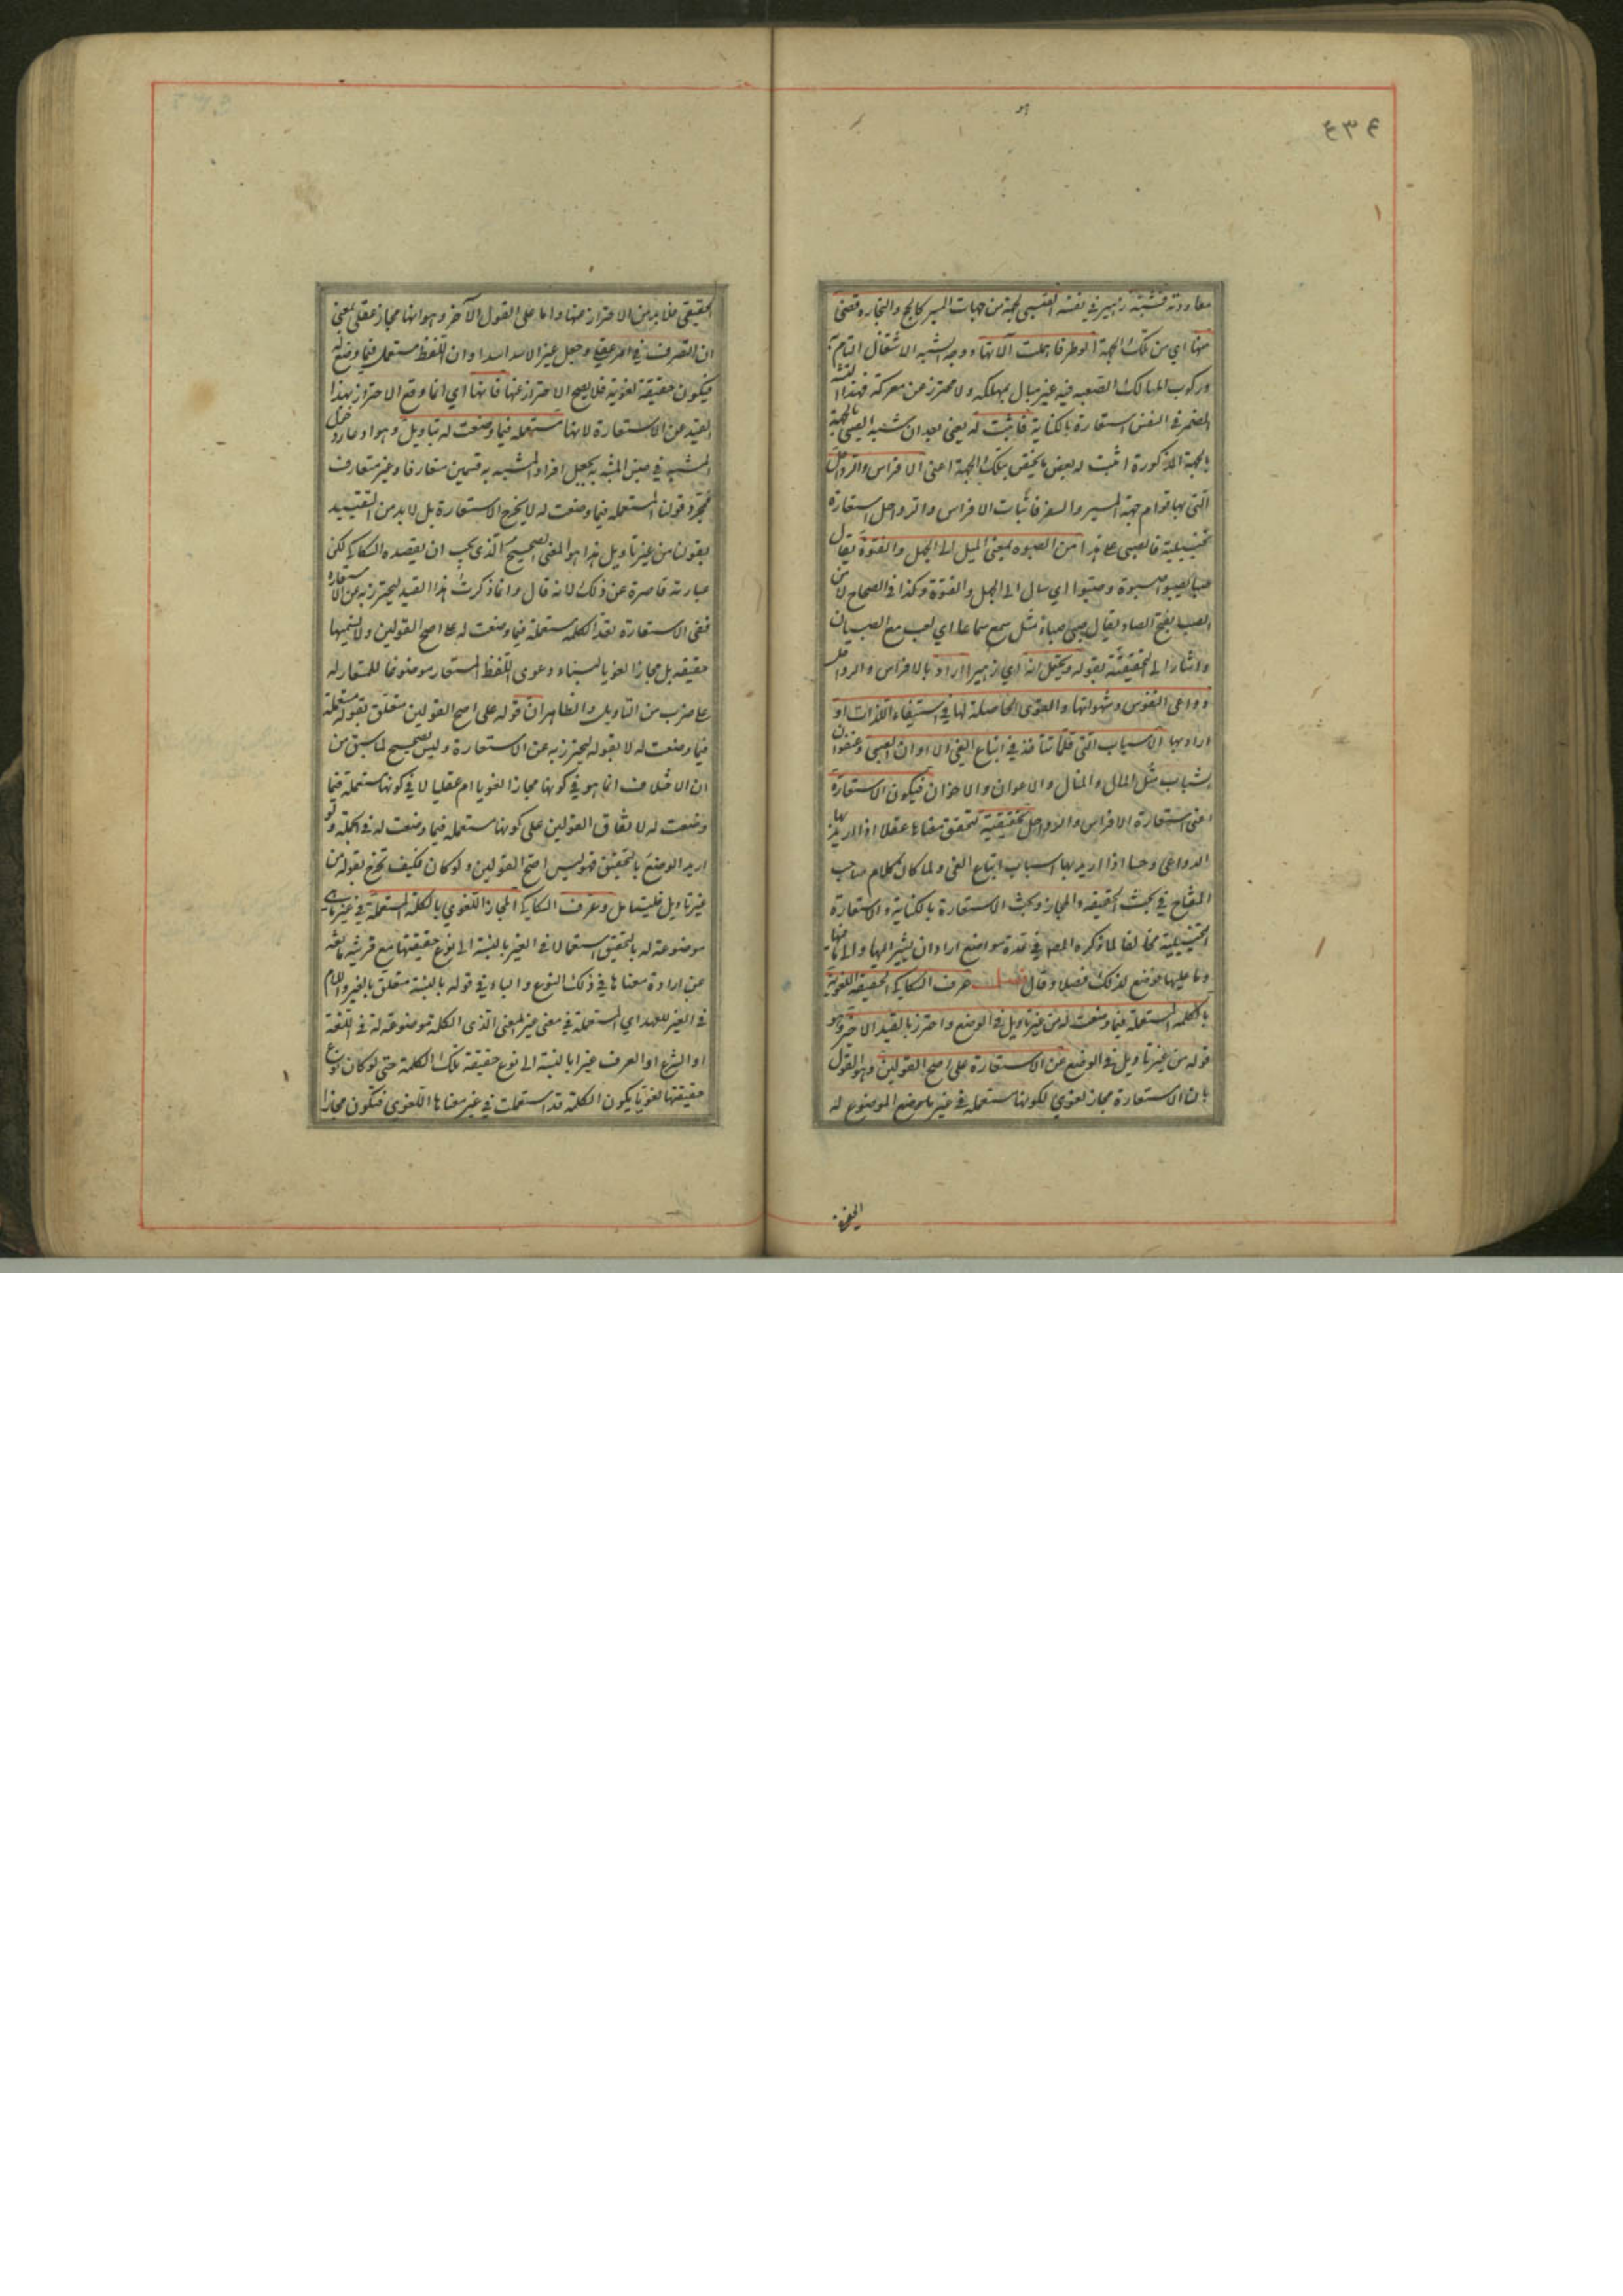 ٤٣٤
معاودته فشبه زهير في نفسه الصبي بجهة من جهات المسير كالحج والتجارة وقضى
منها اي من تلك الجهة الوطر فاهملت آلاتها ووجه الشبه الاشتغال التام به
وركوب المسالك الصعبة فيه غير مبال بمهلكة ولا محترز عن معركة فهذا التشبيه
المضمر في النفس استعارة بالكناية فاثبت له يعني بعد ان شبه الصبي بالجهة
بالجهة المذكورة اثبت له بعض ما يختص بتلك الجهة اعني الافراس والرواحل
التي بها قوام جهة المسير والسفر فاثبات الافراس والرواحل استعارة
تخييلية فالصبي على هذا من الصبوة بمعنى الميل الى الجهل والفتوة يقال
صبا يصبو صبوة وصبوا اي مال الى الجهل والفتوة وكذا في الصحاح لا من
الصبا بفتح الصاد يقال صبي صباء مثل سمع سماعا اي لعب مع الصبيان
واشار الى التحقيقية بقوله ويحتمل انه اي زهيرا اراد بالافراس والرواحل
دواعي النفوس وشهواتها والقوى الحاصلة لها في استيفاء اللذات او
اراد بها الاسباب التي قلما تتآخذ في اتباع الغي الا اوان الصبى وعنفوان
الشباب مثل المال والمنال والاعوان والاخوان فيكون الاستعارة
اعني استعارة الافراس والرواحل تحقيقية لتحقق معناها عقلا اذا اريد بها
الدواعي وحسا اذا اريد بها اسباب اتباع الغي ولما كان كلام صاحب
المفتاح في بحث الحقيقة والمجاز وبحث الاستعارة بالكناية والاستعارة
التخييلية مخالفا لما ذكره المص في عدة مواضع اراد ان يشير اليها والى ما فيها
وما عليها فوضع لذلك فصلا وقال فصل عرف السكاكي الحقيقة اللغوية
بالكلمة المستعملة فيما وضعت له من غير تاويل في الوضع واحترز بالقيد الاخير وهو
قوله من غير تاويل في الوضع عن الاستعارة على اصح القولين وهو القول
بان الاستعارة مجاز لغوي لكونها مستعملة في غير ما وضع الموضوع له
الحقيقي
الحقيقي فلا بد من الاحتراز عنها واما على القول الآخر وهو انها مجاز عقلي بمعنى
ان التصرف في امر عقلي وجعل غير الاسد اسدا وان اللفظ مستعمل فيما وضع له
فيكون حقيقة لغوية فلا يصح الاحتراز عنها فانها اي انما وقع الاحتراز بهذا
القيد عن الاستعارة لانها مستعملة فيما وضعت له بتاويل وهو ادعاء دخول
المشبه في جنس المشبه به بجعل افراد المشبه به قسمين متعارفا وغير متعارف
فمجرد قولنا المستعملة فيما وضعت له لا يخرج الاستعارة بل لا بد من التقييد
بقولنا من غير تاويل هذا هو المعنى الصحيح الذي يجب ان يقصده السكاكي لكن
عبارته قاصرة عن ذلك لانه قال وانما ذكرت هذا القيد ليحترز به عن الاستعارة
ففي الاستعارة تعد الكلمة مستعملة فيما وضعت له على اصح القولين ولا نسميها
حقيقة بل مجازا لغويا لبناء دعوى اللفظ المستعار موضوعا للمستعار له
على ضرب من التاويل والظاهر ان قوله على اصح القولين متعلق بقوله مستعملة
فيما وضعت له لا بقوله ليحترز به عن الاستعارة وليس بصحيح لما سبق من
ان الاختلاف انما هو في كونها مجازا لغويا ام عقليا لا في كونها مستعملة فيما
وضعت له لاتفاق القولين على كونها مستعملة فيما وضعت له في الجملة ولو
اريد الوضع بالتحقيق فهو ليس اصح القولين ولو كان فكيف يخرج بقوله من
غير تاويل فليتامل وعرف السكاكي المجاز اللغوي بالكلمة المستعملة في غير ما هي
موضوعة له بالتحقيق استعمالا في الغير بالنسبة الى نوع حقيقتها مع قرينة مانعة
عن ارادة معناها في ذلك النوع والباء في قوله بالنسبة متعلق بالغير واللام
في الغير للعهد اي المستعملة في معنى غير المعنى الذي الكلمة موضوعة له في اللغة
او الشرع او العرف غيرا بالنسبة الى نوع حقيقة تلك الكلمة حتى لو كان نوع
حقيقتها لغويا يكون الكلمة قد استعملت في غير معناها اللغوي فتكون مجازا